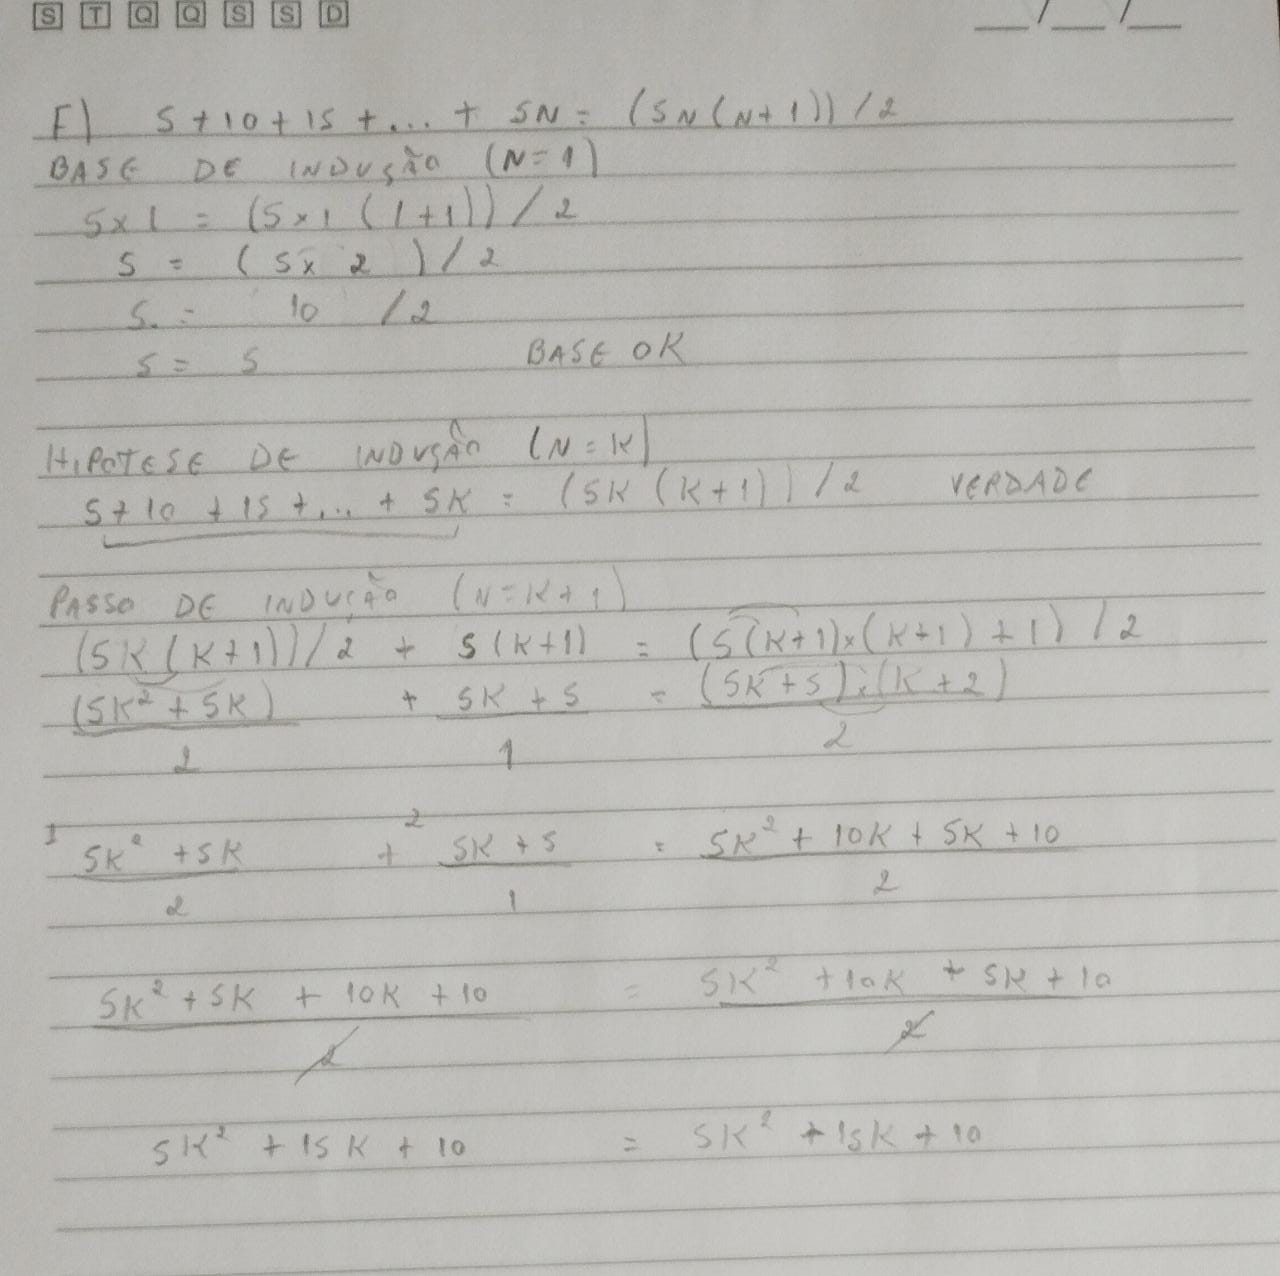 S T Q Q S S D __/__/__
F) 5 + 10 + 15 + ... + 5N = (5N(N+1))/2
BASE DE INDUÇÃO (N=1)
5x1 = (5x1(1+1))/2
5 = (5x2)/2
5 = 10/2
5 = 5 BASE OK
HIPOTESE DE INDUÇÃO (N=K)
5+10+15+...+5K = (5K(K+1))/2 VERDADE
PASSO DE INDUÇÃO (N=K+1)
(5K(K+1))/2 + 5(K+1) = (5(K+1)x(K+1)+1)/2
(5K² + 5K)/2 + (5K + 5)/1 = (5K+5).(K+2)/2
1 (5K² + 5K)/2 + 2 (5K + 5)/1 = (5K² + 10K + 5K + 10)/2
(5K² + 5K + 10K + 10)/2 = (5K² + 10K + 5K + 10)/2
5K² + 15K + 10 = 5K² + 15K + 10